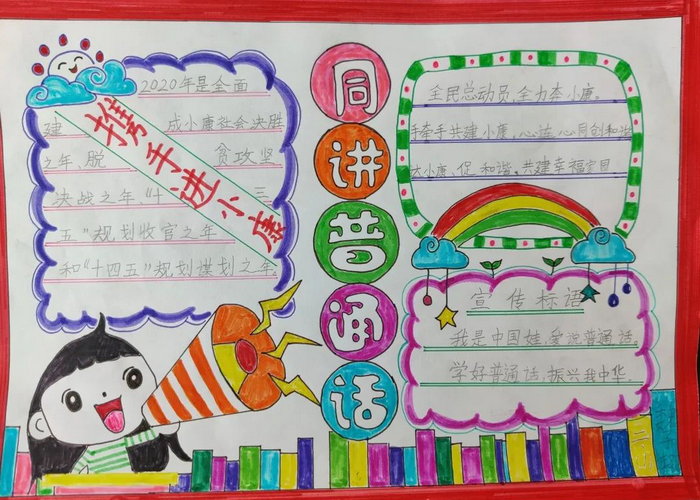 同讲普通话
携手进小康
2020年是全面
建 成小康社会决胜
之年、脱 贫攻坚
决战之年"十 三
五"规划收官之年
和"十四五"规划谋划之年
全民总动员,全力奔小康。
手牵手共建小康,心连心同创和谐
大小康,促和谐,共建幸福家园
宣传标语
我是中国娃,爱说普通话。
学好普通话,振兴我中华